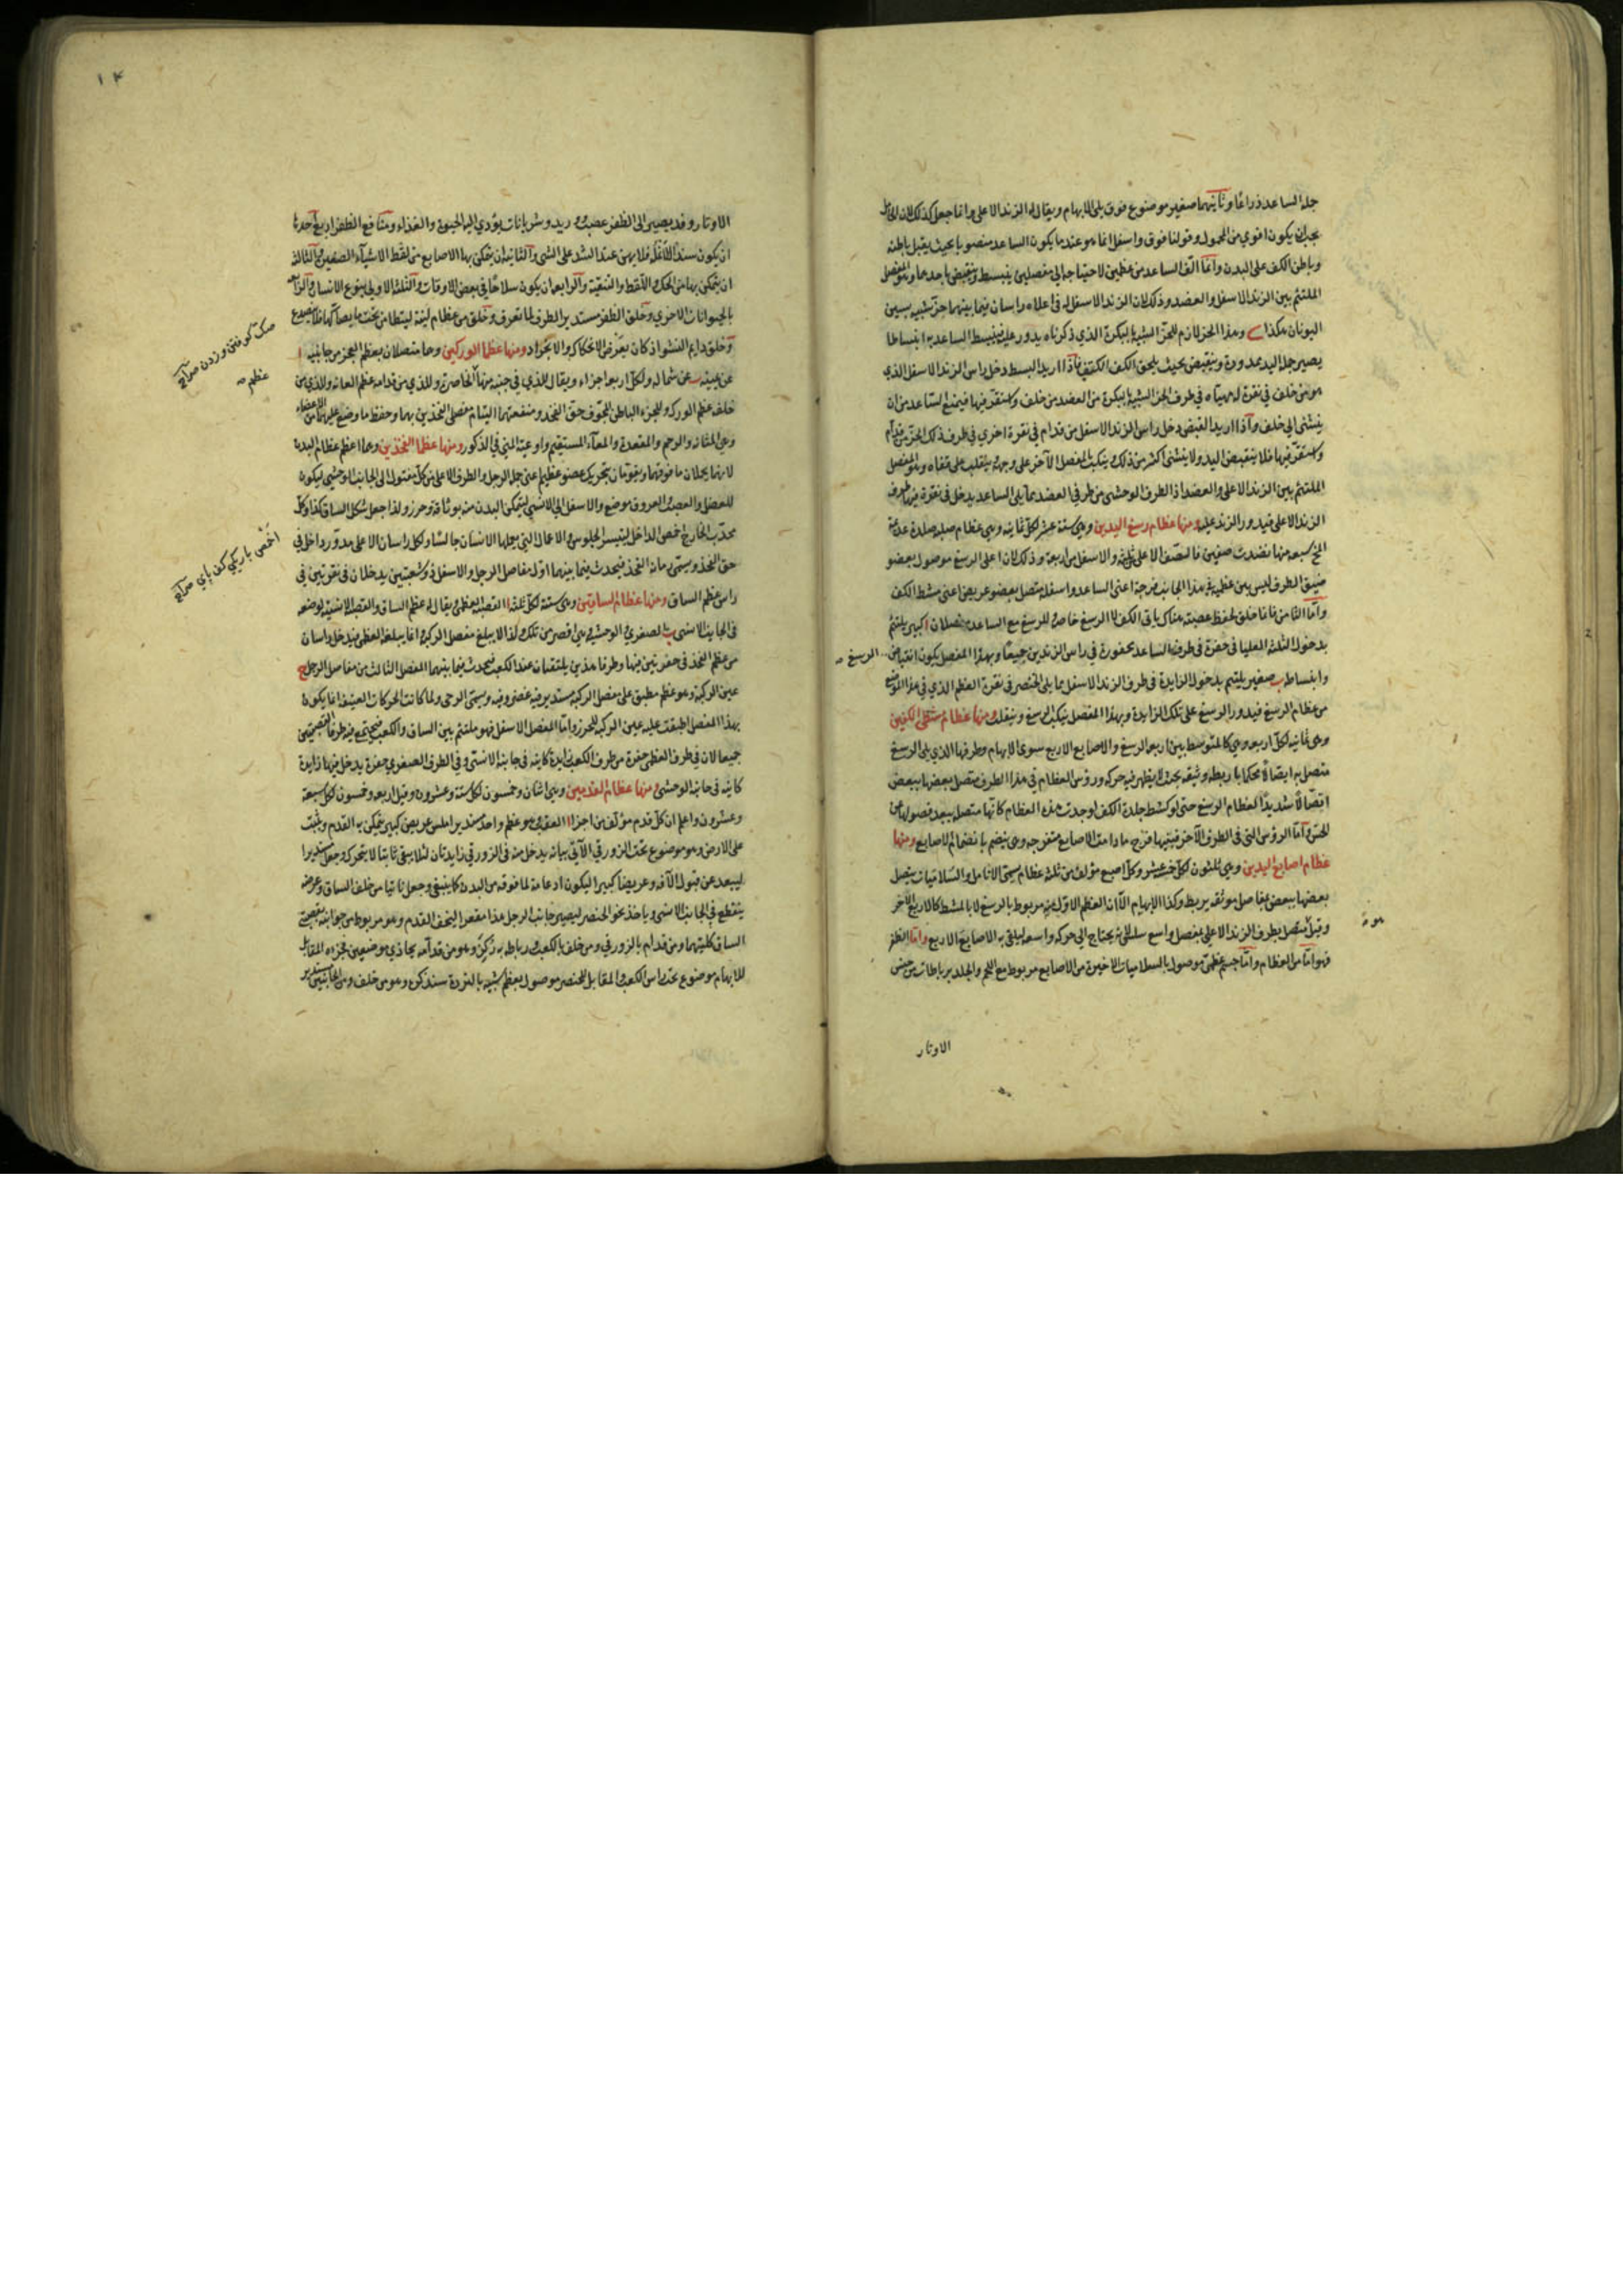 جملة الساعد ذراعًا وثانيهما صغير موضوع فوق يلى الابهام ويقال له الزند الاعلى وانما جعل كذلك لان الحامل
يجب ان يكون اقوي من المحمول وقولنا فوق واسفل انما هو عند ما يكون الساعد منصوبا بحيث يقبل باطنه
وباطن الكف على البدن وامّا الّف الساعد من عظمين لاحتياجه الي مفصلين ينبسط وينقبض باحدهما وهو المفصل
الملتئم بين الزند الاسفل والعضد وذلك لان الزند الاسفل له في اعلاه راسان فيما بينهما حزّ شبيه بسين
اليونان هكذا وهذا الحز لازم للحزّ الشبيه بالبكرة الذي ذكرناه يدور عليه فينبسط الساعد به انبساطا
يصير جملة اليد ممدودة وينقبض بحيث يلحق الكف الكتف فاذا اريد البسط دخل راس الزند الاسفل الذي
هو من خلف في نقرة له مهيّاه في طرف الحز الشبيه بالبكرة من العضد من خلف واستقرّ فيها فيمنع الساعد من ان
ينثنى الي خلف واذا اريد القبض دخل راس الزند الاسفل من قدام في نقرة اخري في طرف ذلك الحزّ من قدام
واستقرّ فيها فلا ينقبض اليد ولا ينثنى اكثر من ذلك وينكبّ بالمفصل الآخر على وجهه وينقلب على قفاه وهو المفصل
الملتئم بين الزند الاعلى والعضد اذ الطرف الوحشى من طرفي العضد مما يلى الساعد يدخل في نقرة فيها طرف
الزند الاعلى فيدور الزند عليه ومنها عظام رسغ اليدين وهى ستة عشر لكلّ ثمانية وهى عظام صلبة صلدة عديمة
المخ سبعة منها نضدت صفين فالصّف الاعلى ثلثه والاسفل من اربعة وذلك لان اعلى الرسغ موصول بعضو
ضيق الطرف ليس بين عظميه في هذا الجانب فرجة اعنى الساعد واسفله متصل بعضو عريض اعنى مشط الكف
وامّا الثامن فانما خلق لحفظ عصبة هناك ياتى الكف لا الرسغ خاصة وللرسغ مع الساعد مفصلان ا كبير يلتئم
بدخول الثلثة العليا في حفرة في طرف الساعد محفورة في راس الزندين جميعًا وبهذا المفصل يكون انقباض الرسغ
وانبساطه ب صغير يلتئم بدخول الزايدة في طرف الزند الاسفل مما يلى الخنصر في نقرة العظم الذي في هذا الموضع
من عظام الرسغ فيدور الرسغ على تلك الزايدة وبهذا المفصل ينكب الرسغ وينقلب ومنها عظام مشطى الكفين
وهى ثمانية لكلّ اربعه وهى كالمتوسط بين اربعه الرسغ والاصابع الاربع سوى الابهام وطرفها الذي يلى الرسغ
متصل به اتصالًا محكما باربطة وثيقة بحيث لا يظهر فيه حركه ورؤس العظام في هذا الطرف متصل بعضها ببعض
اتصّالًا شديدًا كعظام الرسغ حتى لو كشط جلدة الكف لوجدت هذه العظام كانها متصله يبعد فصولها عن
الحسّ وامّا الرؤس التى في الطرف الآخر فبينها فرج ما دامت الاصابع متفرجه وهى ينضم بانضمام الاصابع ومنها
عظام اصابع اليدين وهى ثلثون لكلّ خمسة عشر وكلّ اصبع مؤلف من ثلثة عظام يسمّى الانامل والسّلاميات يتصل
بعضها ببعض بمفاصل موثقه بربط وكذا الابهام الّا ان العظم الاوّل منه مربوط بالرسغ لا بالمشط كالاربع الاخر
وقيل متصل بطرف الزند الاعلى بمفصل واسع سلس لانه يحتاج الي حركه واسعه ليلقى به الاصابع الاربع وامّا الظفر
فهو امّا من العظام وامّا جسم عظمىّ موصول بالسلاميات الاخيرة من الاصابع مربوط مع اللحم والجلد برباطات من جنس
الاوتار
١٤
الاوتار وقد يصير الى الظفر عصب ووريد وشريانات يؤدي اليه الحيوة والغذاء ومنافع الظفر اربع احدها
ان يكون سندا للانملة فلا يهن عند الشد على الشى والثانية ان يتمكن بها الاصابع من لقط الاشيآء الصغيرة والثالثة
ان يتمكن بها من الحك واللقط والتنقية والرابعة ان يكون سلاحًا في بعض الاوقات والثلثة الاولي بنوع الانسان والرابعة
بالحيوانات الاخري وخلق الظفر مستدير الطرف لما تعرف وخلق من عظام لينة ليتطامن تحت ما يصاكّها فلا ينصدع
وخلق دايم النشو اذ كان يعرض للانحكاك والانجراد ومنها عظما الوركين وهما متصلان بعظم العجز من جانبيه ا
عن يمينه ب عن شماله ولكلّ اربعه اجزاء ويقال للذي في جنبه منها الخاصرة وللذي من قدامه عظم العانه وللذي من
خلفه عظم الورك وللجزء الباطن المجوّف حق الفخذ ومنفعتهما التيام مفصلى الفخذين بهما وحفظ ما وضع عليهما من الاعضاء
وهى المثانه والرحم والمقعدة والمعآء المستقيم واوعية المنى في الذكور ومنها عظما الفخذين وهما اعظم عظام البدن
لانهما يحملان ما فوقهما ويقومان بتحريك عضو عظيم اعنى جملة الرجل والطرف الاعلى من كلّ مفتول الى الجانب الوحشى ليكون
للعضل والعصب والعروق موضع والاسفل الي الانسى ليتمكن البدن منه بوثاقة وحرز ولذا جعل شكل الساق كذا وكلّ
محدّب الخارج اخمص الداخل ليتيسر الجلوس والاعمال التى يعملها الانسان جالسًا ولكل راسان الاعلى مدوّر داخل في
حق الفخذ ويسمّى رمانة الفخذ فيحدث فيما بينهما اوّل مفاصل الرجل والاسفل ذو شعبتين يدخلان في نقرتين في
راس عظم الساق ومنها عظام الساقين وهى ستة لكلّ ثلثه ا القصبة العظمى يقال له عظم الساق والقصبة الانسيه لوضعه
في الجانب الانسى ب الصغري الوحشيه وهى اقصر من تلك ولذا لا يبلغ مفصل الركبه وانما يبلغه العظمى فيدخل راسان
من عظم الفخذ في حفرتين منها وطرفا هذين يلتقيان عند الكعب فيحدث فيما بينهما المفصل الثالث من مفاصل الرجل ج
عين الركبة وهو عظم مطبق على مفصل الركبة مستدير فيه غضروفيه ويسمّى الرحى ولما كانت الحركات العنيفة انما يكون
بهذا المفصل اطبقت عليه عين الركبة للحرز وامّا المفصل الاسفل فهو ملتئم بين الساق والكعب فيجتمع فيه طرفا القصبتين
جميعا لان في طرف العظمى حفرة من طرف الكعب زايدة كاينه في جانبه الانسى وفي الطرف الصغري حفرة يدخل فيها زايدة
كاينه في جانبه الوحشى ومنها عظام القدمين وهى اثنان وخمسون لكلّ ستة وعشرون وقيل اربعه وخمسون لكل سبعة
وعشرون واعلم ان كلّ قدم مؤلف من اجزاء ا العقب وهو عظم واحد مستدير املس عريض كبير يتمكن به القدم ويثبت
على الارض وهو موضوع تحت الزورقي الآتى بيانه يدخل منه في الزورقي زايدتان لئلا يبقى ثابتا لا يتحرك وجعل مستديرا
ليبعد عن قبول الآفه وعريضا كبيرا ليكون دعامة لما فوقه من البدن كما ينبغي وجعل ناتيا من خلف الساق وعرضه
ينقطع في الجانب الانسى وياخذ نحو الخنصر ليصير جانب الرجل هذا مقعرا ليخف القدم وهو مربوط من جوانبه بقصبتي
الساق كلتيهما ومن قدام بالزورقي ومن خلف بالكعب ورباطه به زكن وهو من قدامه يحاذي موضعين بجزءه المقابل
للابهام موضوع تحت راس الكعب والمقابل للخنصر موصول بعظم شبيه بالنرد سنذكره وهو من خلف ومن الجانبين مستدير
صكّ كوفتن وزدن صراح
عظم
اخمص باريكي كف پاي صراح